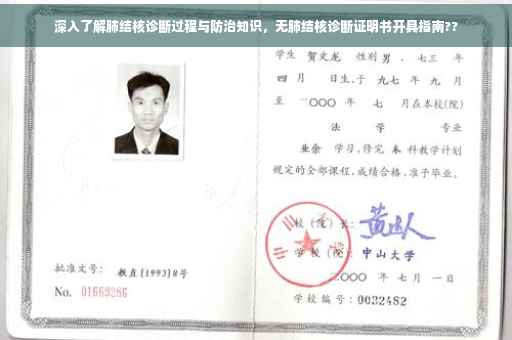 深入了解肺结核诊断过程与防治知识，无肺结核诊断证明书开具指南??
学生 贺文龙 性别 男 、七三 年
四 月 日生,于 九七 年 九 月
至 二〇〇〇 年 七 月在本校(院)
法 学 专业
业余 学习,修完 本 科教学计划
规定的全部课程,成绩合格,准予毕业。
校 (院) 长:
学 校 (院): 中山大学
二〇〇〇 年 七 月 一 日
学校编号: 0032482
批准文号: 教直(1993)8号
No. 01669286